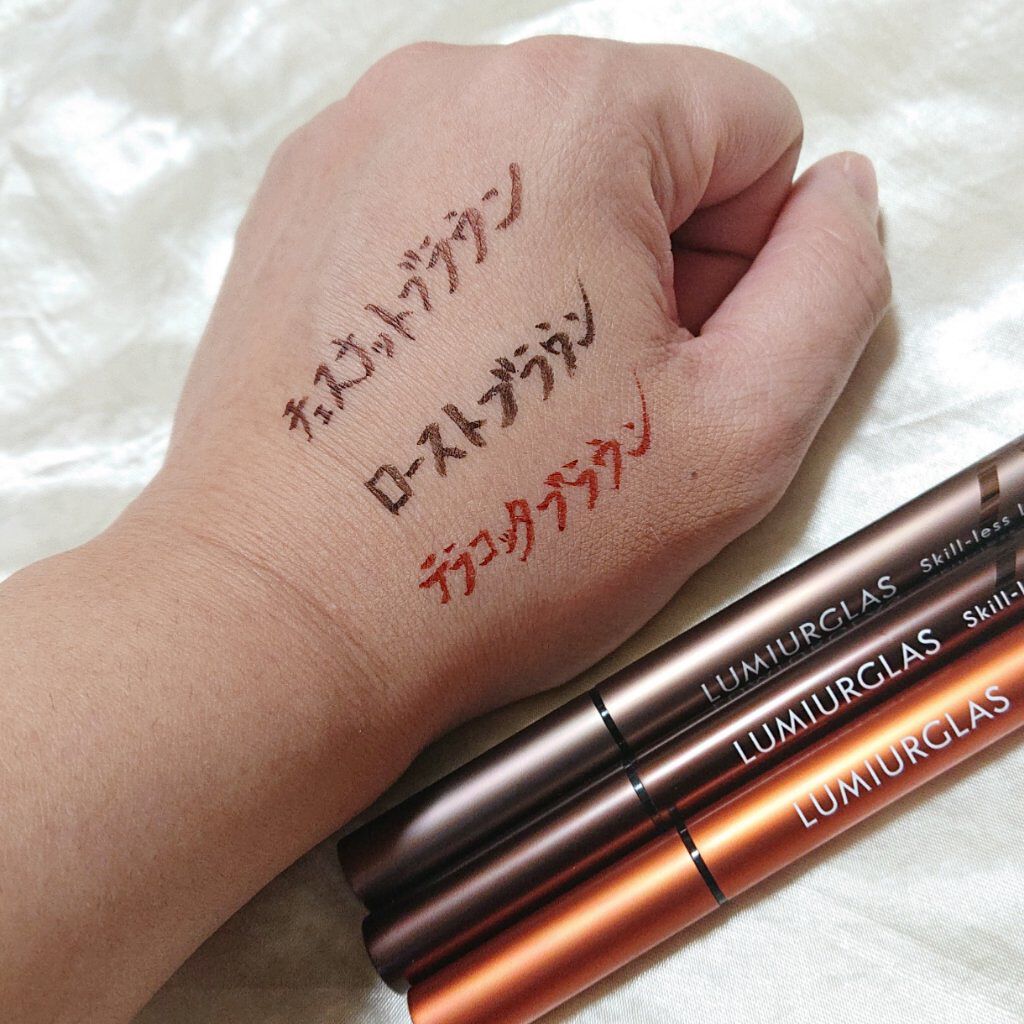 チェスナットブラウン
ローストブラウン
テラコッタブラウン
LUMIURGLAS Skill-less
LUMIURGLAS Skill-
LUMIURGLAS